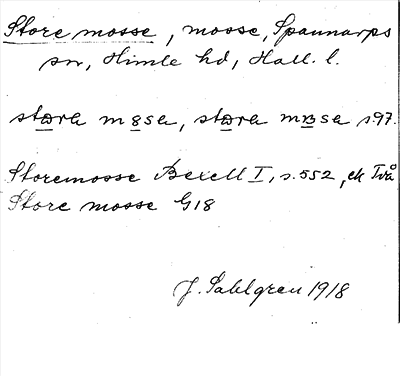 Store mosse, mosse, Spannarps
sn, Himle hd, Hall. l.
Storemosse Bexell I, s. 552, ek Två
Store mosse G18
J. Sahlgren 1918